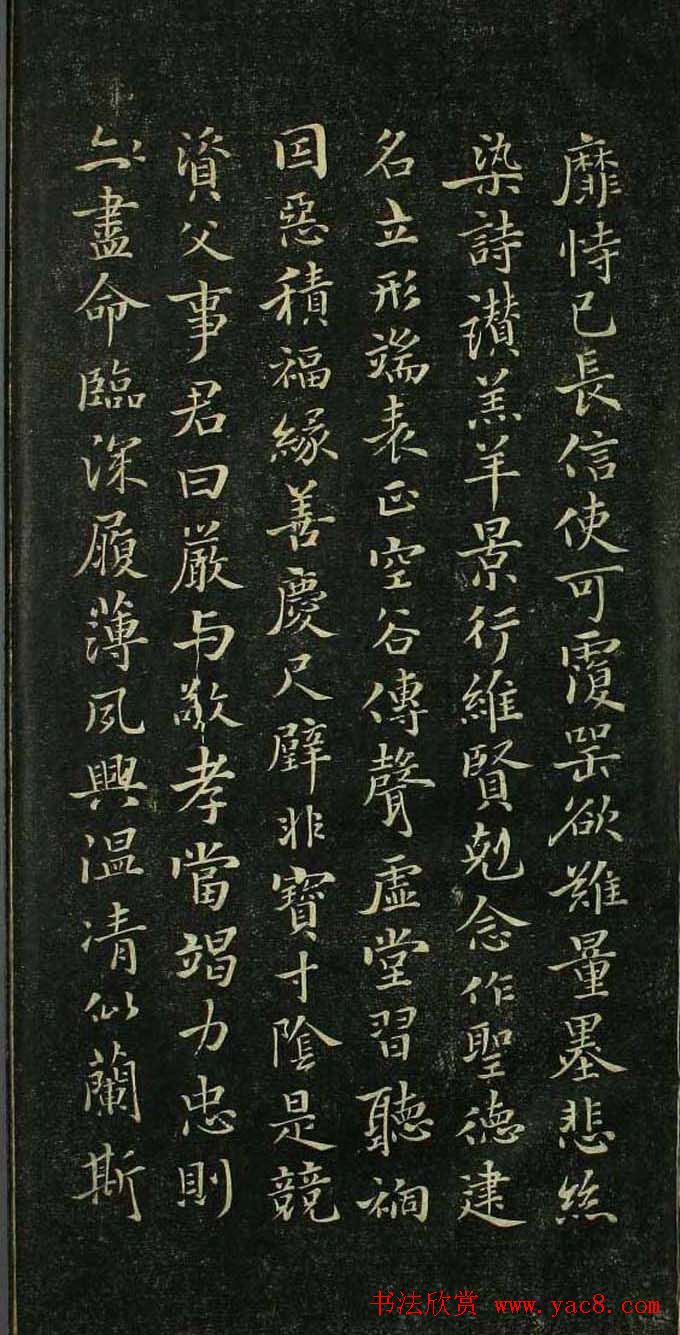 靡恃己長信使可覆器欲難量墨悲絲
染詩讚羔羊景行維賢剋念作聖德建
名立形端表正空谷傳聲虛堂習聽禍
因惡積福緣善慶尺璧非寶寸陰是競
資父事君曰嚴与敬孝當竭力忠則
盡命臨深履薄夙興温凊似蘭斯
书法欣赏 www.yac8.com